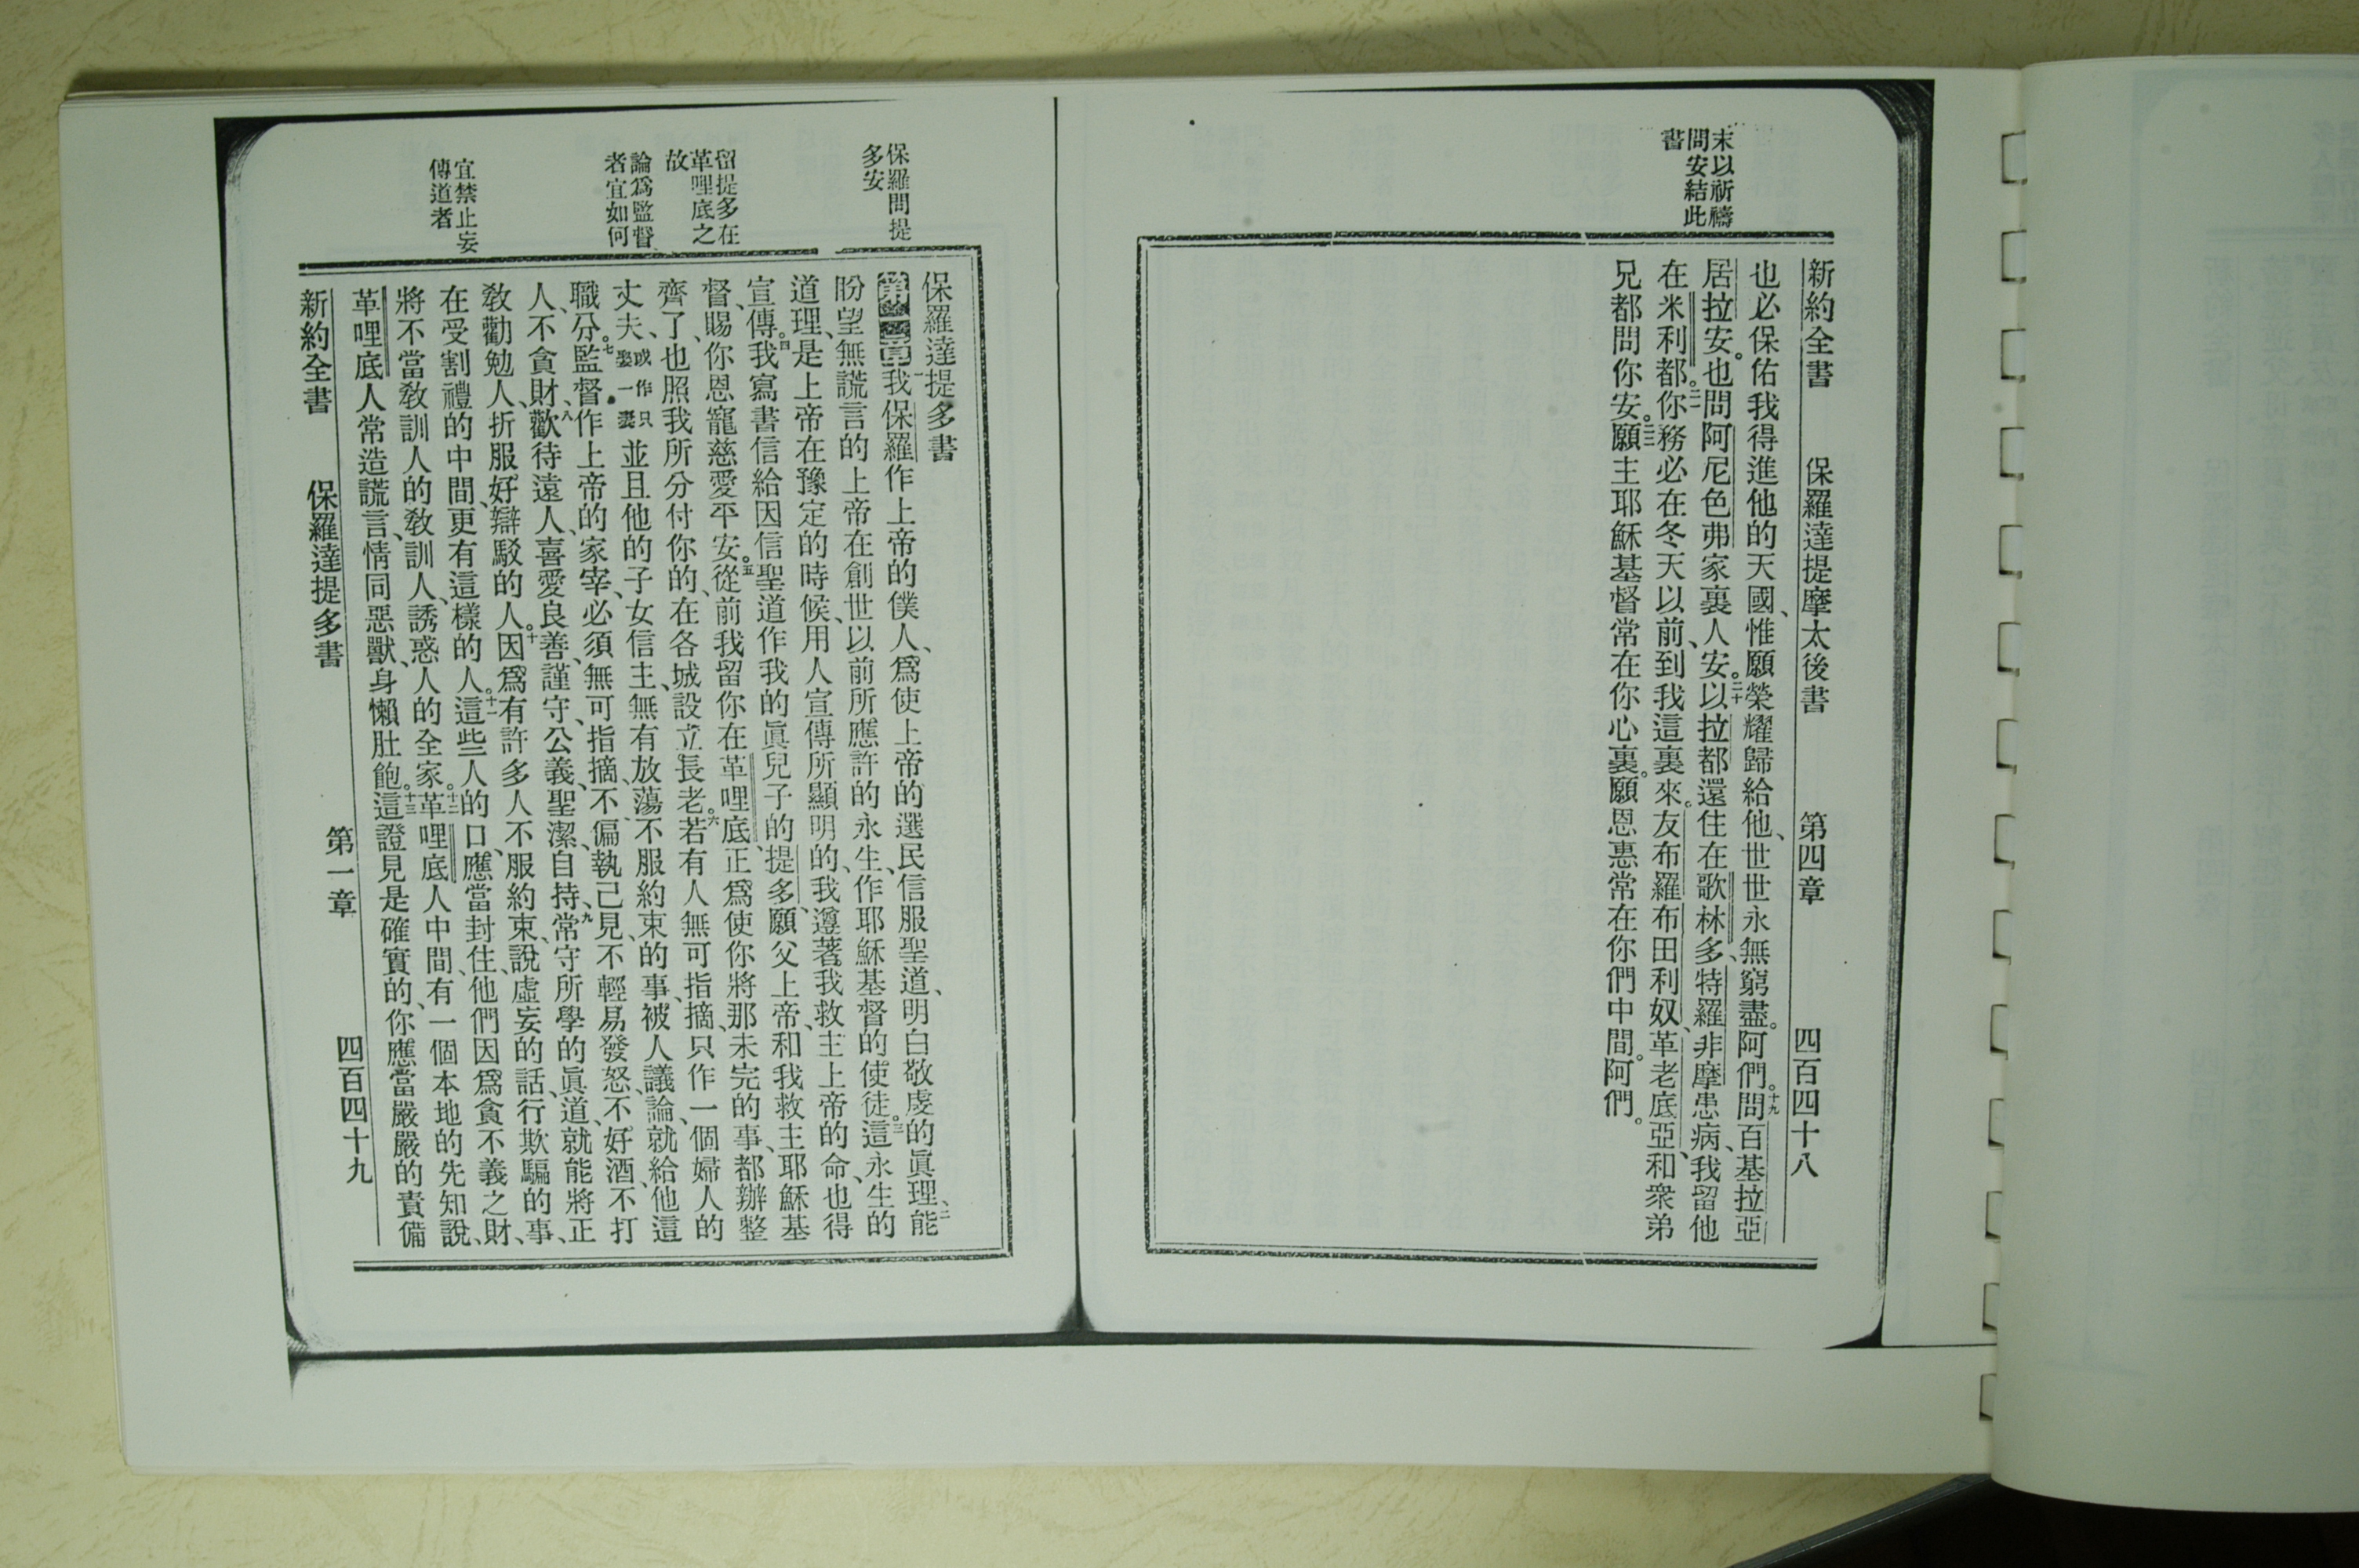 末以祈禱
問安結此
書
新約全書　保羅達提摩太後書　第四章　四百四十八
也必保佑我得進他的天國、惟願榮耀歸給他、世世永無窮盡。阿們。十九問百基拉亞
居拉安。也問阿尼色弗家裏人安。二十以拉都還住在歌林多、特羅非摩患病、我留他
在米利都。二一你務必在冬天以前、到我這裏來。友布羅布田利奴、革老底亞、和衆弟
兄都問你安。二二願主耶穌基督常在你心裏。願恩惠常在你們中間。阿們。
保羅問提
多安
留提多在
革哩底之
故
論爲監督
者宜如何
宜禁止妄
傳道者
保羅達提多書
第一章一我保羅作上帝的僕人、爲使上帝的選民信服聖道、明白敬虔的眞理、二能
盼望無謊言的上帝在創世以前所應許的永生、作耶穌基督的使徒。三這永生的
道理、是上帝在豫定的時候、用人宣傳所顯明的、我遵著我救主上帝的命、也得
宣傳。四我寫書信給因信聖道作我的眞兒子的提多、願父上帝、和我救主耶穌基
督、賜你恩寵慈愛平安。五從前我留你在革哩底、正爲使你將那未完的事、都辦整
齊了、也照我所分付你的、在各城設立長老。六若有人無可指摘、只作一個婦人的
丈夫、或作只娶一妻並且他的子女信主、無有放蕩不服約束的事、被人議論、就給他這
職分。七監督作上帝的家宰、必須無可指摘、不偏執己見、不輕易發怒、不好酒、不打
人、不貪財、八歡待遠人、喜愛良善、謹守、公義、聖潔、自持、九常守所學的眞道、就能將正
敎勸勉人、折服好辯駁的人。十因爲有許多人不服約束、說虛妄的話、行欺騙的事、
在受割禮的中間、更有這樣的人。十一這些人的口、應當封住、他們因爲貪不義之財、
將不當敎訓人的敎訓人、誘惑人的全家。十二革哩底人中間、有一個本地的先知說、
革哩底人常造謊言、情同惡獸、身懶肚飽。十三這證見是確實的、你應當嚴嚴的責備
新約全書　保羅達提多書　第一章　四百四十九